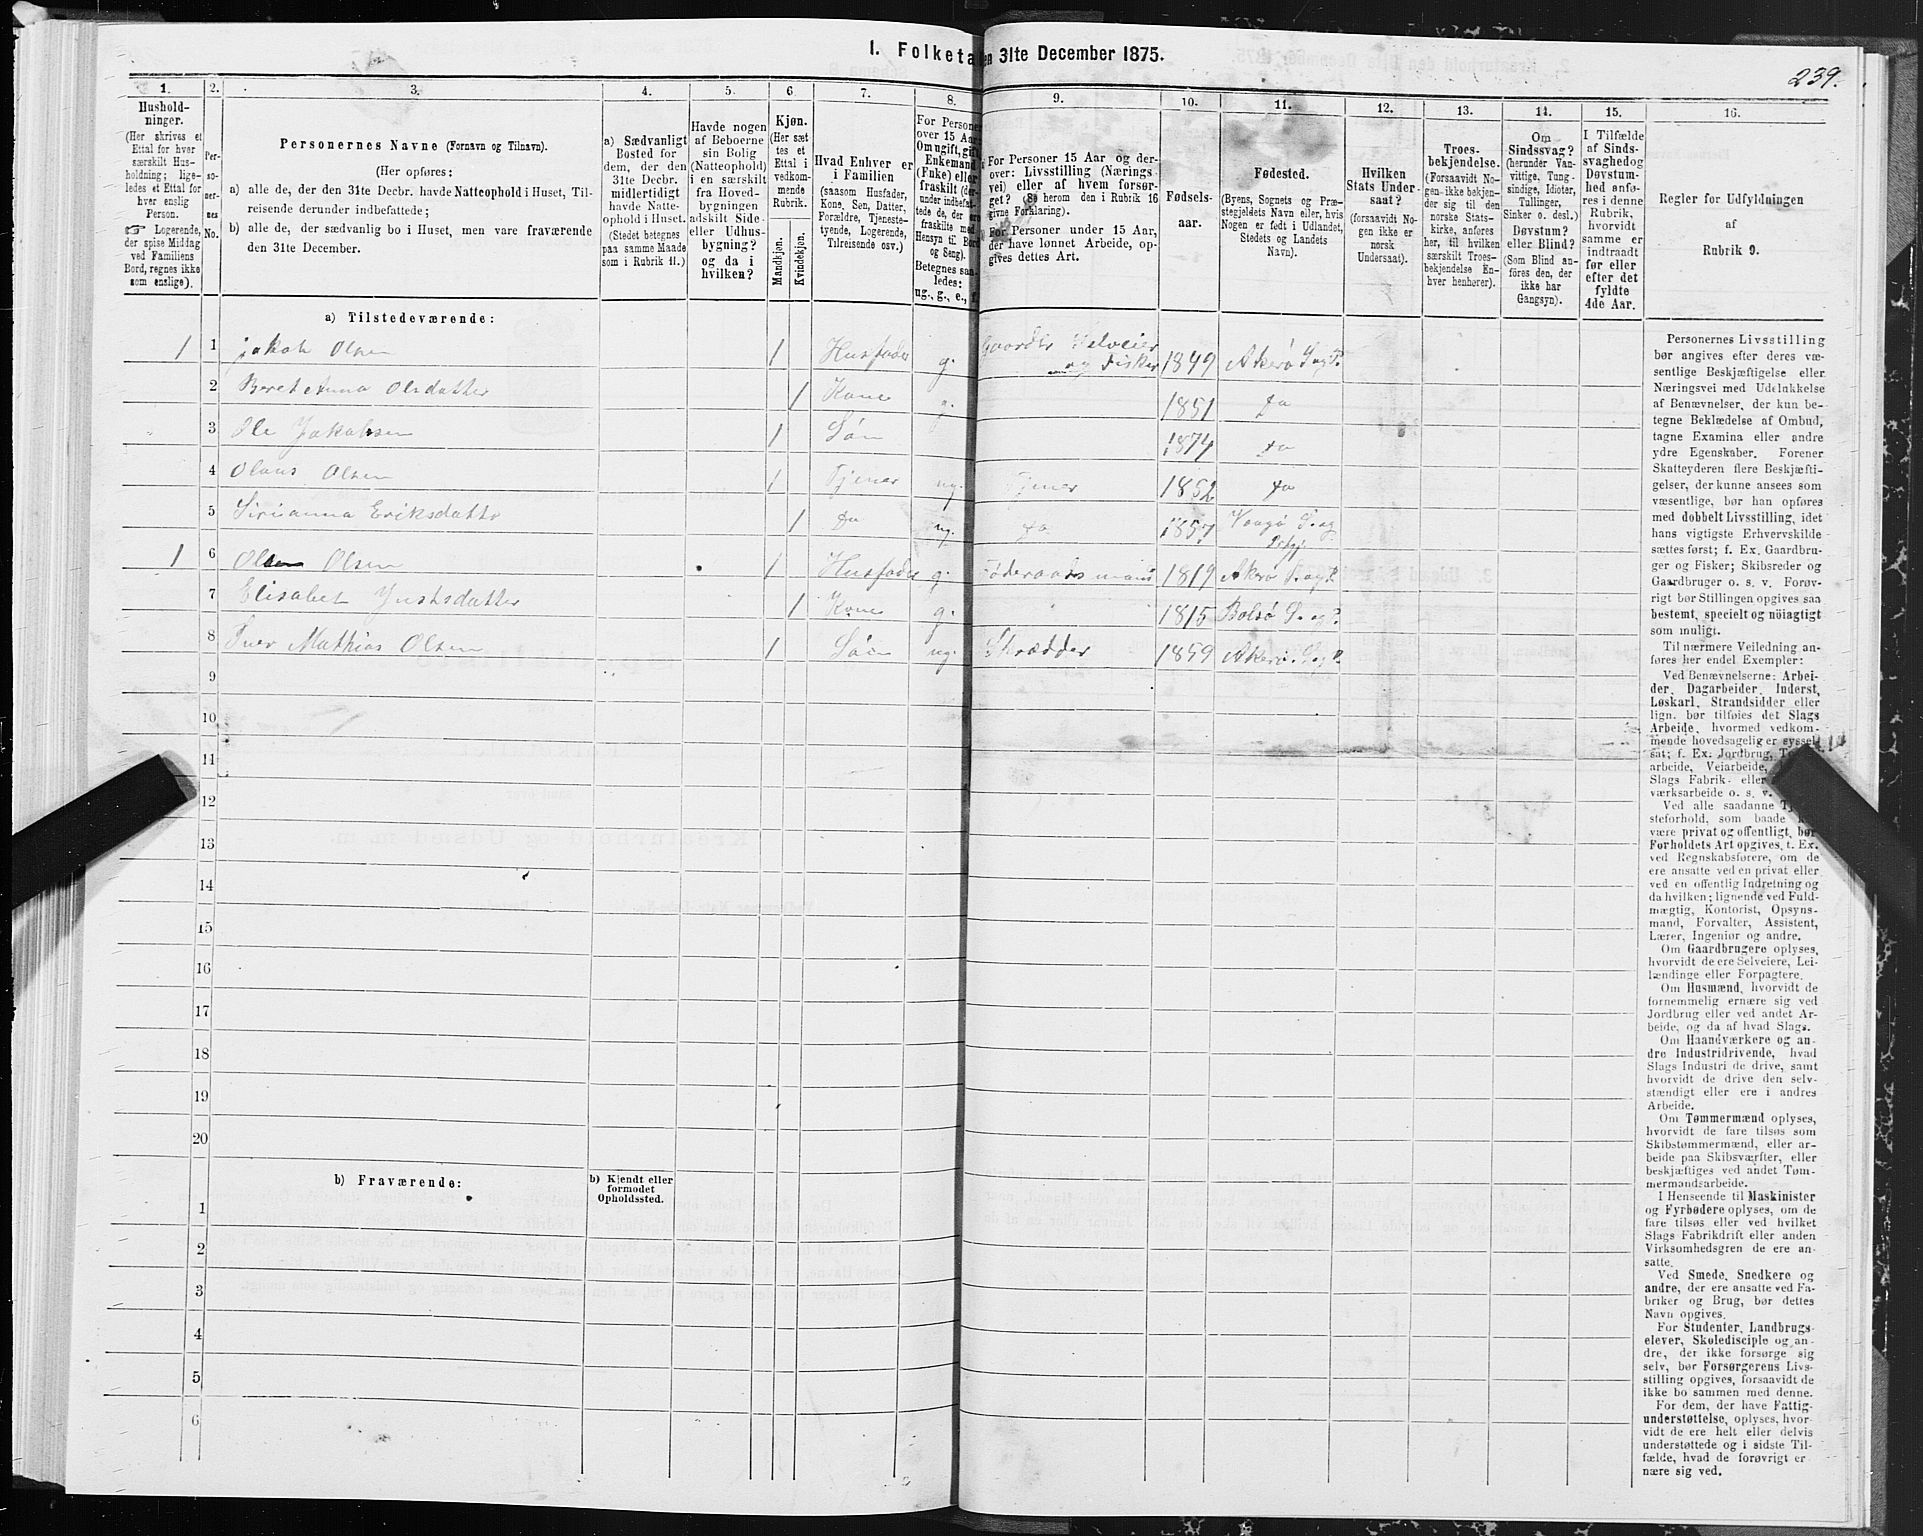 1. Folketa en 31te December 1875.
239.
1.
2.
3.
4.
5.
6.
7.
8.
9.
10.
11.
12.
13.
14.
15.
16.
Hushold-
ninger.
(Her skrives et
Ettal for hver
særskilt Hus-
holdning; lige-
ledes et Ettal for
hver enslig
Person.
☞ Logerende,
der spise Middag
ved Familiens
Bord, regnes ikke
som enslige).
Per-
so-
ner-
nes
No.
Personernes Navne (Fornavn og Tilnavn).
(Her opføres:
a) alle de, der den 31te Decbr. havde Natteophold i Huset, Til-
reisende derunder indbefattede;
b) alle de, der sædvanlig bo i Huset, men vare fraværende
den 31te December.
a) Sædvanligt
Bosted for
dem, der den
31te Decbr.
midlertidigt
havde Natte-
ophold i Huset.
(Stedet betegnes
paa samme Maade
som i Rubrik 11.)
Havde nogen
af Beboerne
sin Bolig
(Natteophold)
i en særskilt
fra Hoved-
bygningen
adskilt Side-
eller Udhus-
bygning?
og da i
hvilken?
Kjøn.
(Her sæt-
tes et
Ettal i
vedkom-
mende
Rubrik.
Mandkjøn.
Kvindekjøn.
Hvad Enhver er
i Familien
(saasom Husfader,
Kone, Søn, Datter,
Forældre, Tjeneste-
tyende, Logerende,
Tilreisende osv.)
For Personer
over 15 Aar:
Om ugift, gift,
Enkemand
(Enke) eller
fraskilt (der-
under indbefat-
tede de, der ere
fraskilte med
Hensyn til Bord
og Seng).
Betegnes saa-
ledes:
ug., g., e., f.
For Personer 15 Aar og der-
over: Livsstilling (Nærings-
vei) eller af hvem forsør-
get? (Se herom den i Rubrik 16
givne Forklaring).
For Personer under 15 Aar,
der have lønnet Arbeide, op-
gives dettes Art.
Fødsels-
aar.
Fødested.
(Byens, Sognets og Præ-
stegjeldets Navn eller, hvis
Nogen er født i Udlandet,
Stedets og Landets
Navn).
Hvilken
Stats Under-
saat?
(forsaavidt No-
gen ikke er
norsk
Undersaat).
Troes-
bekjendelse.
(Forsaavidt No-
gen ikke bekjen-
der sig til den
norske Stats-
kirke, anføres
her, til hvilken
særskilt Troes-
bekjendelse En-
hver henhører).
Om
Sindssvag?
(herunder Van-
vittige, Tung-
sindige, Idioter,
Tullinger,
Sinker o. desl.)
Døvstum?
eller Blind?
(Som Blind an-
føres den, der
ikke har
Gangsyn).
I Tilfælde
af Sinds-
svaghed og
Døvstum-
hed anfø-
res i denne
Rubrik,
hvorvidt
samme er
indtraadt
før eller
efter det
fyldte
4de Aar.
Regler for Udfyldningen
af
Rubrik 9.
a) Tilstedeværende:
1 1 Jakob Olsen 1 Husfader g. Gaardbr Selveier og Fisker 1849 Akerø S og P.
2 Beret Anna Olsdatter 1 Kone g. 1851 do
3 Ole Jakobsen 1 Søn 1874 do
4 Olaus Olsen 1 Tjener ug. Tjener 1852 do
5 Sirianna Eriksdatter 1 do ug. do 1857 Vaagø S. og
1 6 Olsen 1 Husfader g. Føderaadsmand 1819 Akerø S. og P.
7 Elisabet Justsdatter 1 Kone g. 1815 Bolsø S. og P.
8 Iver Mathias Olsen 1 Søn ug. Skrædder 1859 Akerø S. og P.
9
10
11
12
13
14
15
16
17
18
19
20
b) Fraværende:
b) Kjendt eller
formodet
Opholdssted.
1
2
3
4
5
6
Personernes Livsstilling
bør angives efter deres væ-
sentlige Beskjæftigelse eller
Næringsvei med Udelukkelse
af Benævnelser, der kun be-
tegne Beklædelse af Ombud,
tagne Examina eller andre
ydre Egenskaber. Forener
Skatteyderen flere Beskjæfti-
gelser, der kunne ansees som
væsentlige, bør han opføres
med dobbelt Livsstilling, idet
hans vigtigste Erhvervskilde
sættes først; f. Ex. Gaardbru-
ger og Fisker; Skibsreder og
Gaardbruger o. s. v. Forøv-
rigt bør Stillingen opgives saa
bestemt, specielt og nöiagtigt
som muligt.
Til nærmere Veiledning an-
føres her endel Exempler:
Ved Benævnelserne: Arbei-
der, Dagarbeider, Inderst,
Løskarl, Strandsidder eller
lign. bør tilføies det Slags
Arbeide, hvormed vedkom-
mende hovedsagelig er syssel-
sat; f. Ex. Jordbrug, T
arbeide, Veiarbeide,
Slags Fabrik- eller
værksarbeide o. s. v.
Ved alle saadanne Tj
steforhold, som baade
være privat og offentligt, bør
Forholdets Art opgives, f. Ex.
ved Regnskabsførere, om de
ere ansatte ved en privat eller
ved en offentlig Indretning og
da hvilken; lignende ved Fuld-
mægtig, Kontorist, Opsyns-
mand, Forvalter, Assistent,
Lærer, Ingeniør og andre.
Om Gaardbrugere oplyses,
hvorvidt de ere Selveiere, Lei-
lændinge eller Forpagtere.
Om Husmænd, hvorvidt de
fornemmelig ernære sig ved
Jordbrug eller ved andet Ar-
beide, og da af hvad Slags.
Om Haandværkere og an-
dre Industridrivende, hvad
Slags Industri de drive, samt
hvorvidt de drive den selv-
stændigt eller ere i andres
Arbeide.
Om Tømmermænd oplyses,
hvorvidt de fare tilsøs som
Skibstømmermænd, eller ar-
beide paa Skibsværfter, eller
beskjæftiges ved andet Tøm-
mermandsarbeide.
I Henseende til Maskinister
og Fyrbødere oplyses, om de
fare tilsøs eller ved hvilket
Slags Fabrikdrift eller anden
Virksomhedsgren de ere an-
satte.
Ved Smede, Snedkere og
andre, der ere ansatte ved Fa-
briker og Brug, bør dettes
Navn opgives.
For Studenter, Landbrugs-
elever, Skoledisciple og an-
dre, der ikke forsørge sig
selv, bør Forsørgerens Livs-
stilling opgives, forsaavidt de
ikke bo sammen med denne.
For dem, der have Fattig-
understøttelse, oplyses, hvor-
vidt de ere helt eller delvis
understøttede og i sidste Til-
fælde, hvad de forøvrigt er-
nære sig ved.